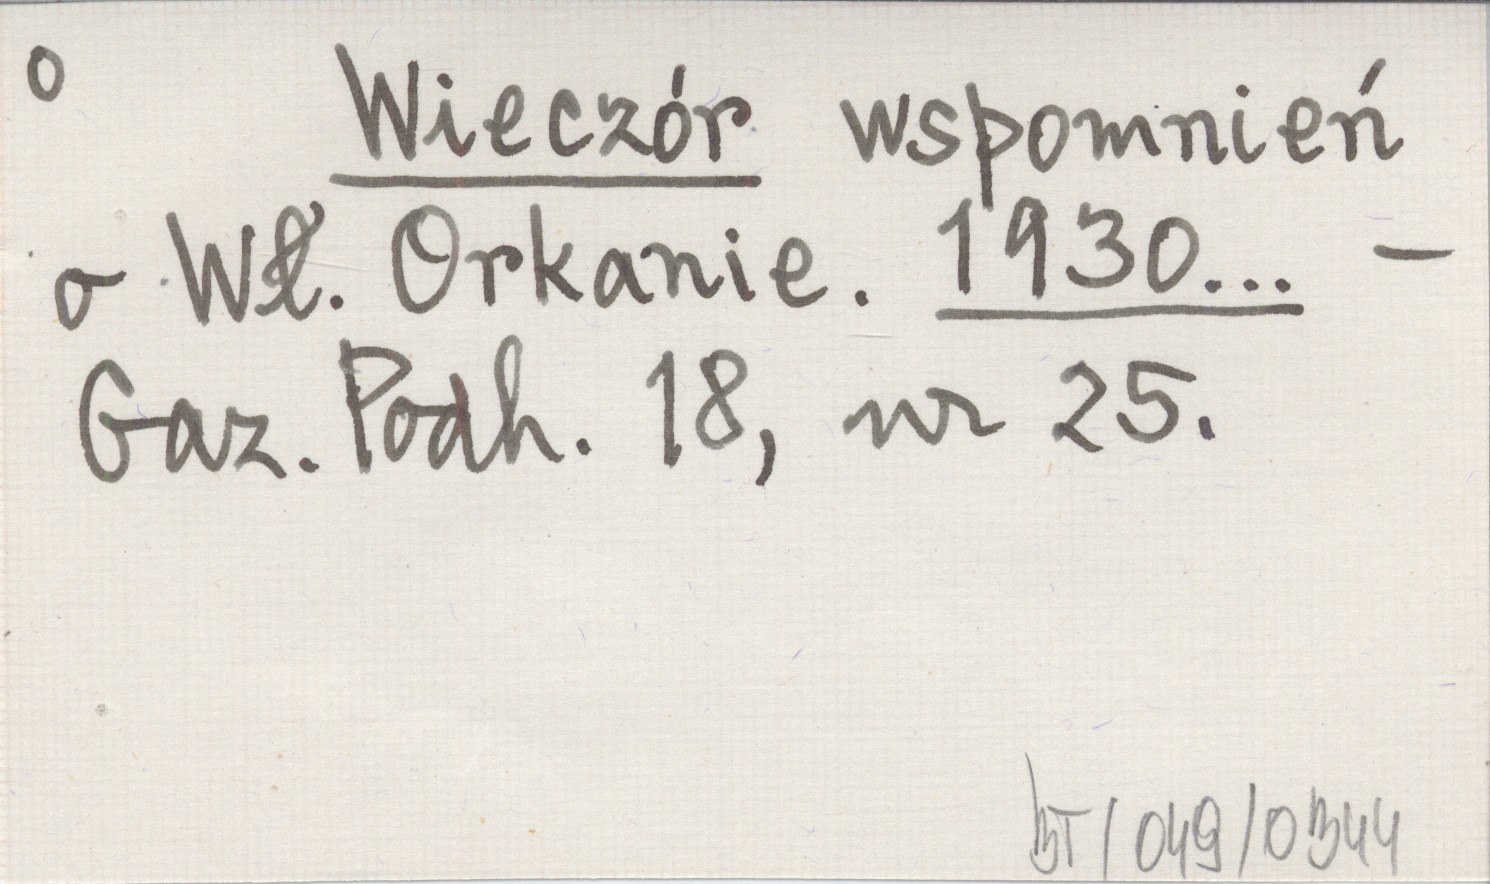 o Wieczór wspomnień
o Wł. Orkanie. 1930... —
Gaz. Podh. 18, nr 25.
BT/049/0344